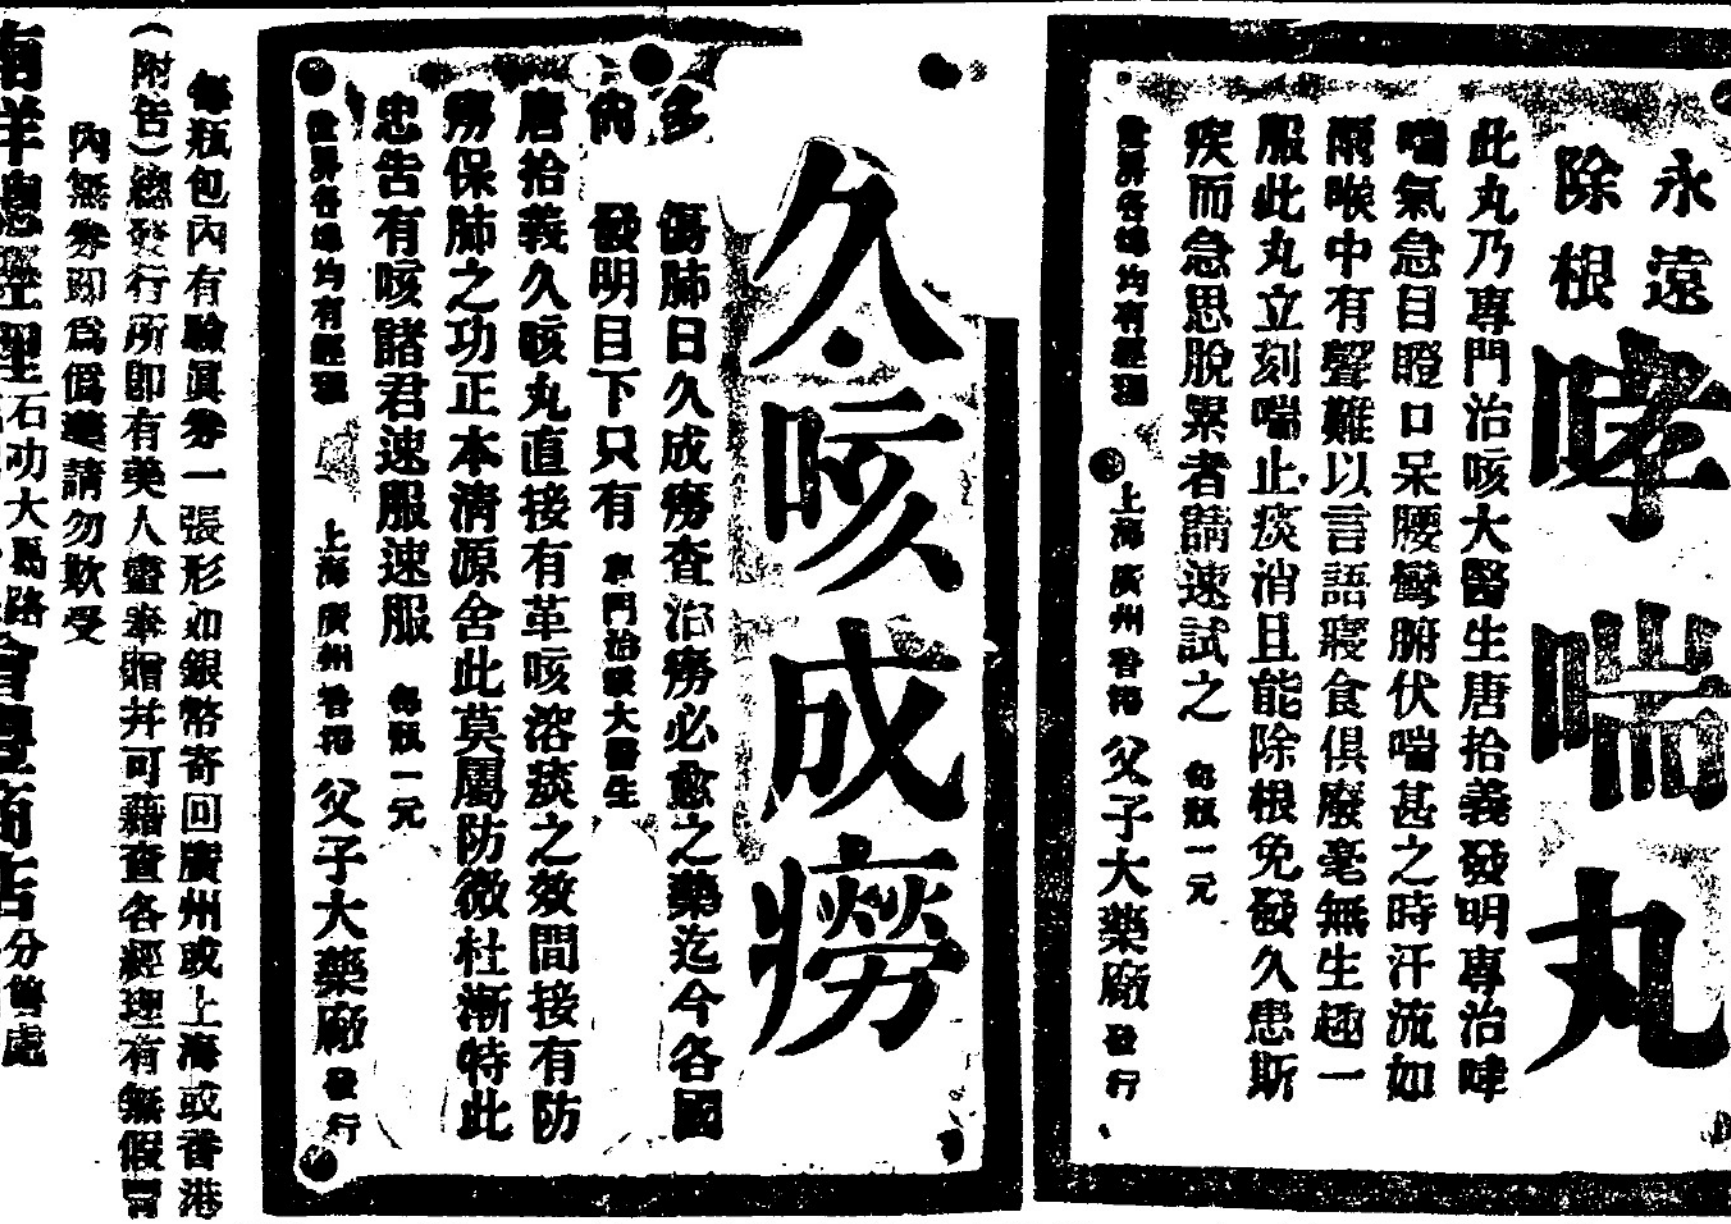 永遠
除根
哮喘丸
此丸乃專門治咳大醫生唐拾義發明專治哮
喘氣急目瞪口呆腰彎腑伏喘甚之時汗流如
雨喉中有聲難以言語寢食俱廢毫無生趣一
服此丸立刻喘止痰消且能除根免發久患斯
疾而急思脫累者請速試之 每瓶一元
世界各埠均有經理 上海廣州香港 父子大藥廠 發行
久咳成癆
多 傷肺日久成癆查治癆必愈之藥迄今各國
尚 發明目下只有 專門治咳大醫生
唐拾義久咳丸直接有革咳溶痰之效間接有防
癆保肺之功正本清源舍此莫屬防微杜漸特此
忠告有咳諸君速服速服 每瓶一元
世界各埠均有經理 上海廣州香港 父子大藥廠 發行
每瓶包內有驗眞券一張形如銀幣寄回廣州或上海或香港
(附告)總發行所卽有美人畫奉贈幷可藉查各經理有無假冒
內無券卽爲僞藥請勿欺受
南洋總經理 石叻大馬路 分售處